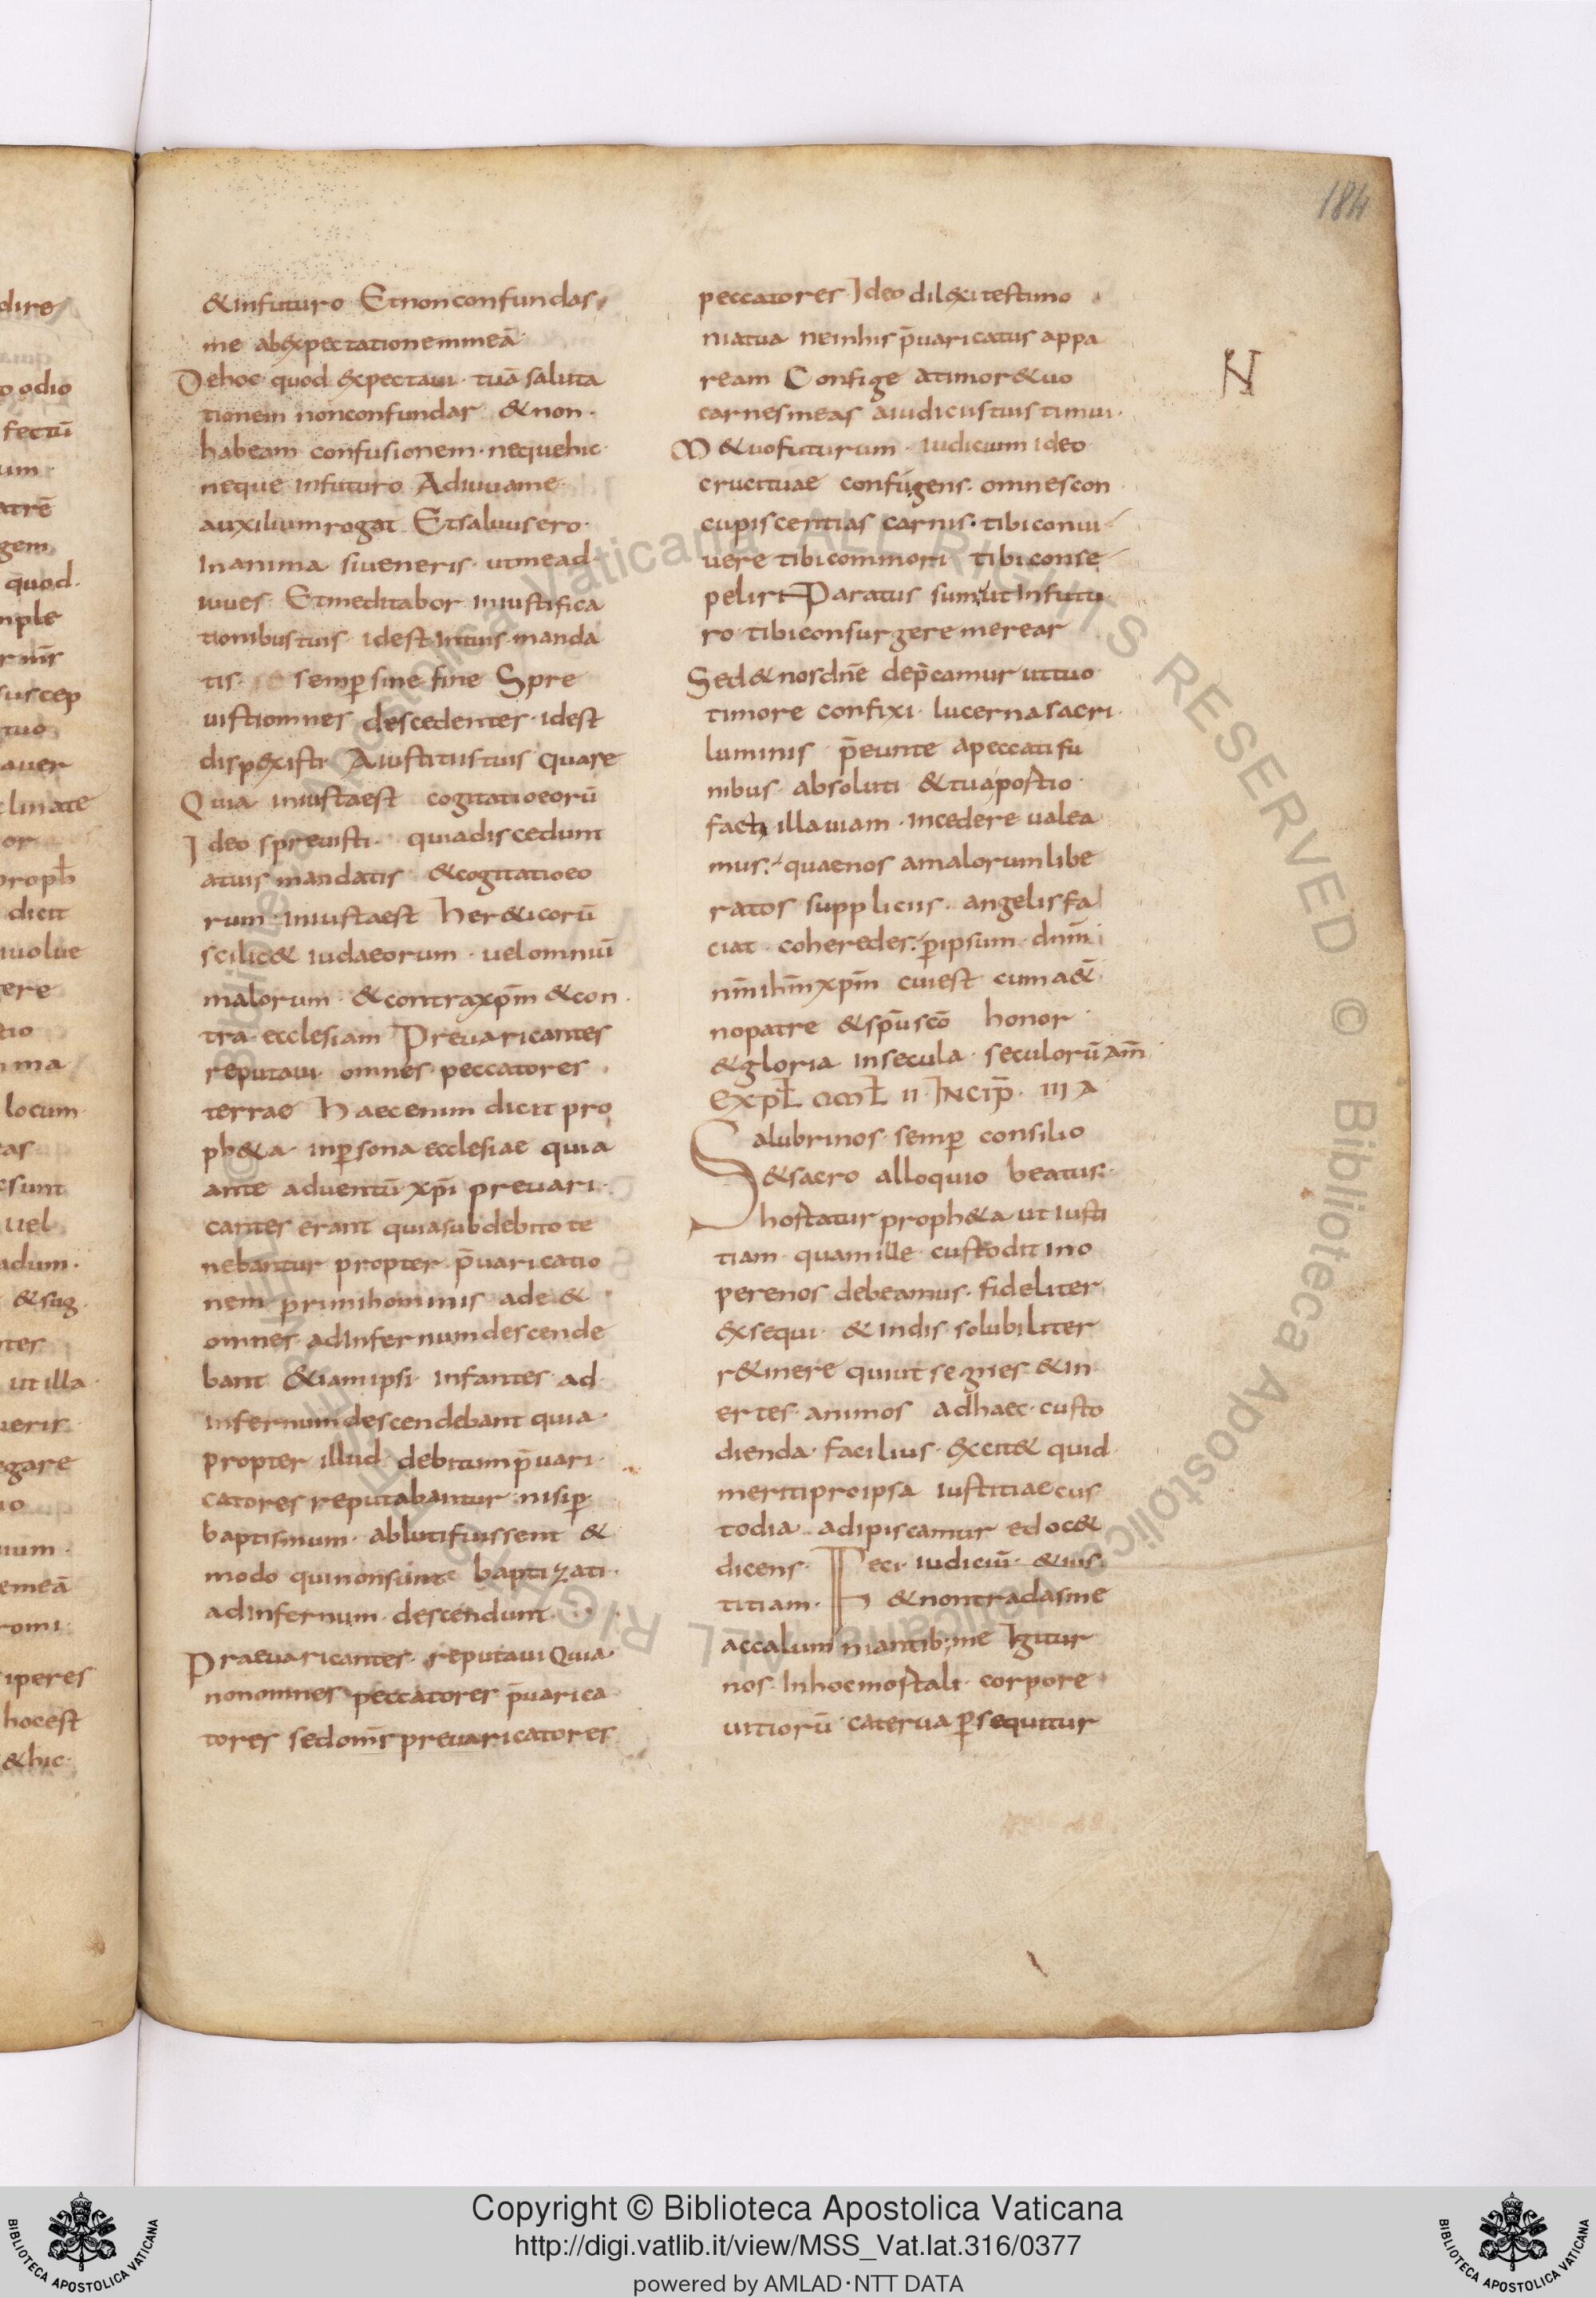 dire
o odio
fectū
um
atrē
gem
quod
mple
suscep
tuo
auer
clinate
or
dicit
uolue
ere
tio
ma
locum
eas
sunt
uel
adum
&sug
ntes
ut illa
ueris
egare
io
uum
emeā
romi
iperes
hocest
&hic
184
&infuturo Etnonconfundas
me ab&xpectationemmeā
Dehoc quod &xpectaui tuā saluta
tionem nonconfundar &non
habeam confusionem nequehic
neque infuturo Adiuuame
auxiliumrogat Etsaluusero
Inanima siueneris utmead
iuues Etmeditabor iniustifica
tionibustuis idest intuis manda
tis semp̄ sine fine Spre
uistiomnes descedentes idest
disp&xisti Aiustitiistuis Quare
Quia iniustaest cogitatioeorū
Ideo spreuisti quiadiscedunt
atuis mandatis &cogitatioeo
rum iniustaest her&icorū
scilic& iudaeorum uelomniū
malorum &contraxp̄m &con
tra ecclesiam Preuaricantes
reputaui omnes peccatores
terrae haecenim dicit pro
ph&a inp̄sona ecclesiae quia
ante aduentū xp̄i preuari
cantes erant quiasubdebito te
nebantur propter p̄uaricatio
nem primihominis ade &
omnes adInfernumdescende
bant &iamipsi infantes ad
infernumdescendebant quia
propter illud debitump̄uari
catores reputabantur nisip̄
baptismum ablutifuissent &
modo quinonsunt baptizati
adInfernum descendunt
Praeuaricantes reputaui Quia
nonomnes peccatores p̄uarica
tores sedom̄s preuaricatores
peccatores Ideo dil&xitestimo
niatua neinhis p̄uaricatus appa
ream Confige atimor&uo
carnesmeas aiudiciistuis timui
M&uofuturum iudicium ideo
crucituae configens omnescon
cupiscentias carnis tibiconui
uere tibicommori tibiconse
peliri Paratus sum ut Infutu
ro tibiconsurgere merear
Sed&nosdn̄e dep̄camur uttuo
timore confixi lucernasacri
luminis p̄eunte apeccatifu
nibus absoluti &tuapostio
facti illauiam incedere ualea
mus quaenos amalorumlibe
ratos suppliciis angelisfa
ciat coheredes p̄ipsum dn̄m
nm̄ihm̄xpm̄ cuiest cuma&̄
nopatre &sp̄uscō honor
&gloria insecula seculorūam̄
Expł omł II Incip̄ III A
Salubrinos semp̄ consilio
&sacro alloquio beatus
hostatur proph&a ut iusti
tiam quamille custodit ino
perenos debeamus fideliter
&xsequi &indis solubiliter
r&inere quiut segnes &in
ertes animos adhaec custo
dienda facilius &xcit& quid
meritiproipsa iustitiaecus
todia adipiscamur edoc&
dicens Feci iudiciū &ius
titiam &nontradasme
accalumniantib;me Igitur
nos Inhocmostali corpore
uitiorū caterua p̄sequitur
N
Copyright © Biblioteca Apostolica Vaticana
http://digi.vatlib.it/view/MSS_Vat.lat.316/0377
powered by AMLAD·NTT DATA
BIBLIOTECA APOSTOLICA VATICANA
BIBLIOTECA APOSTOLICA VATICANA